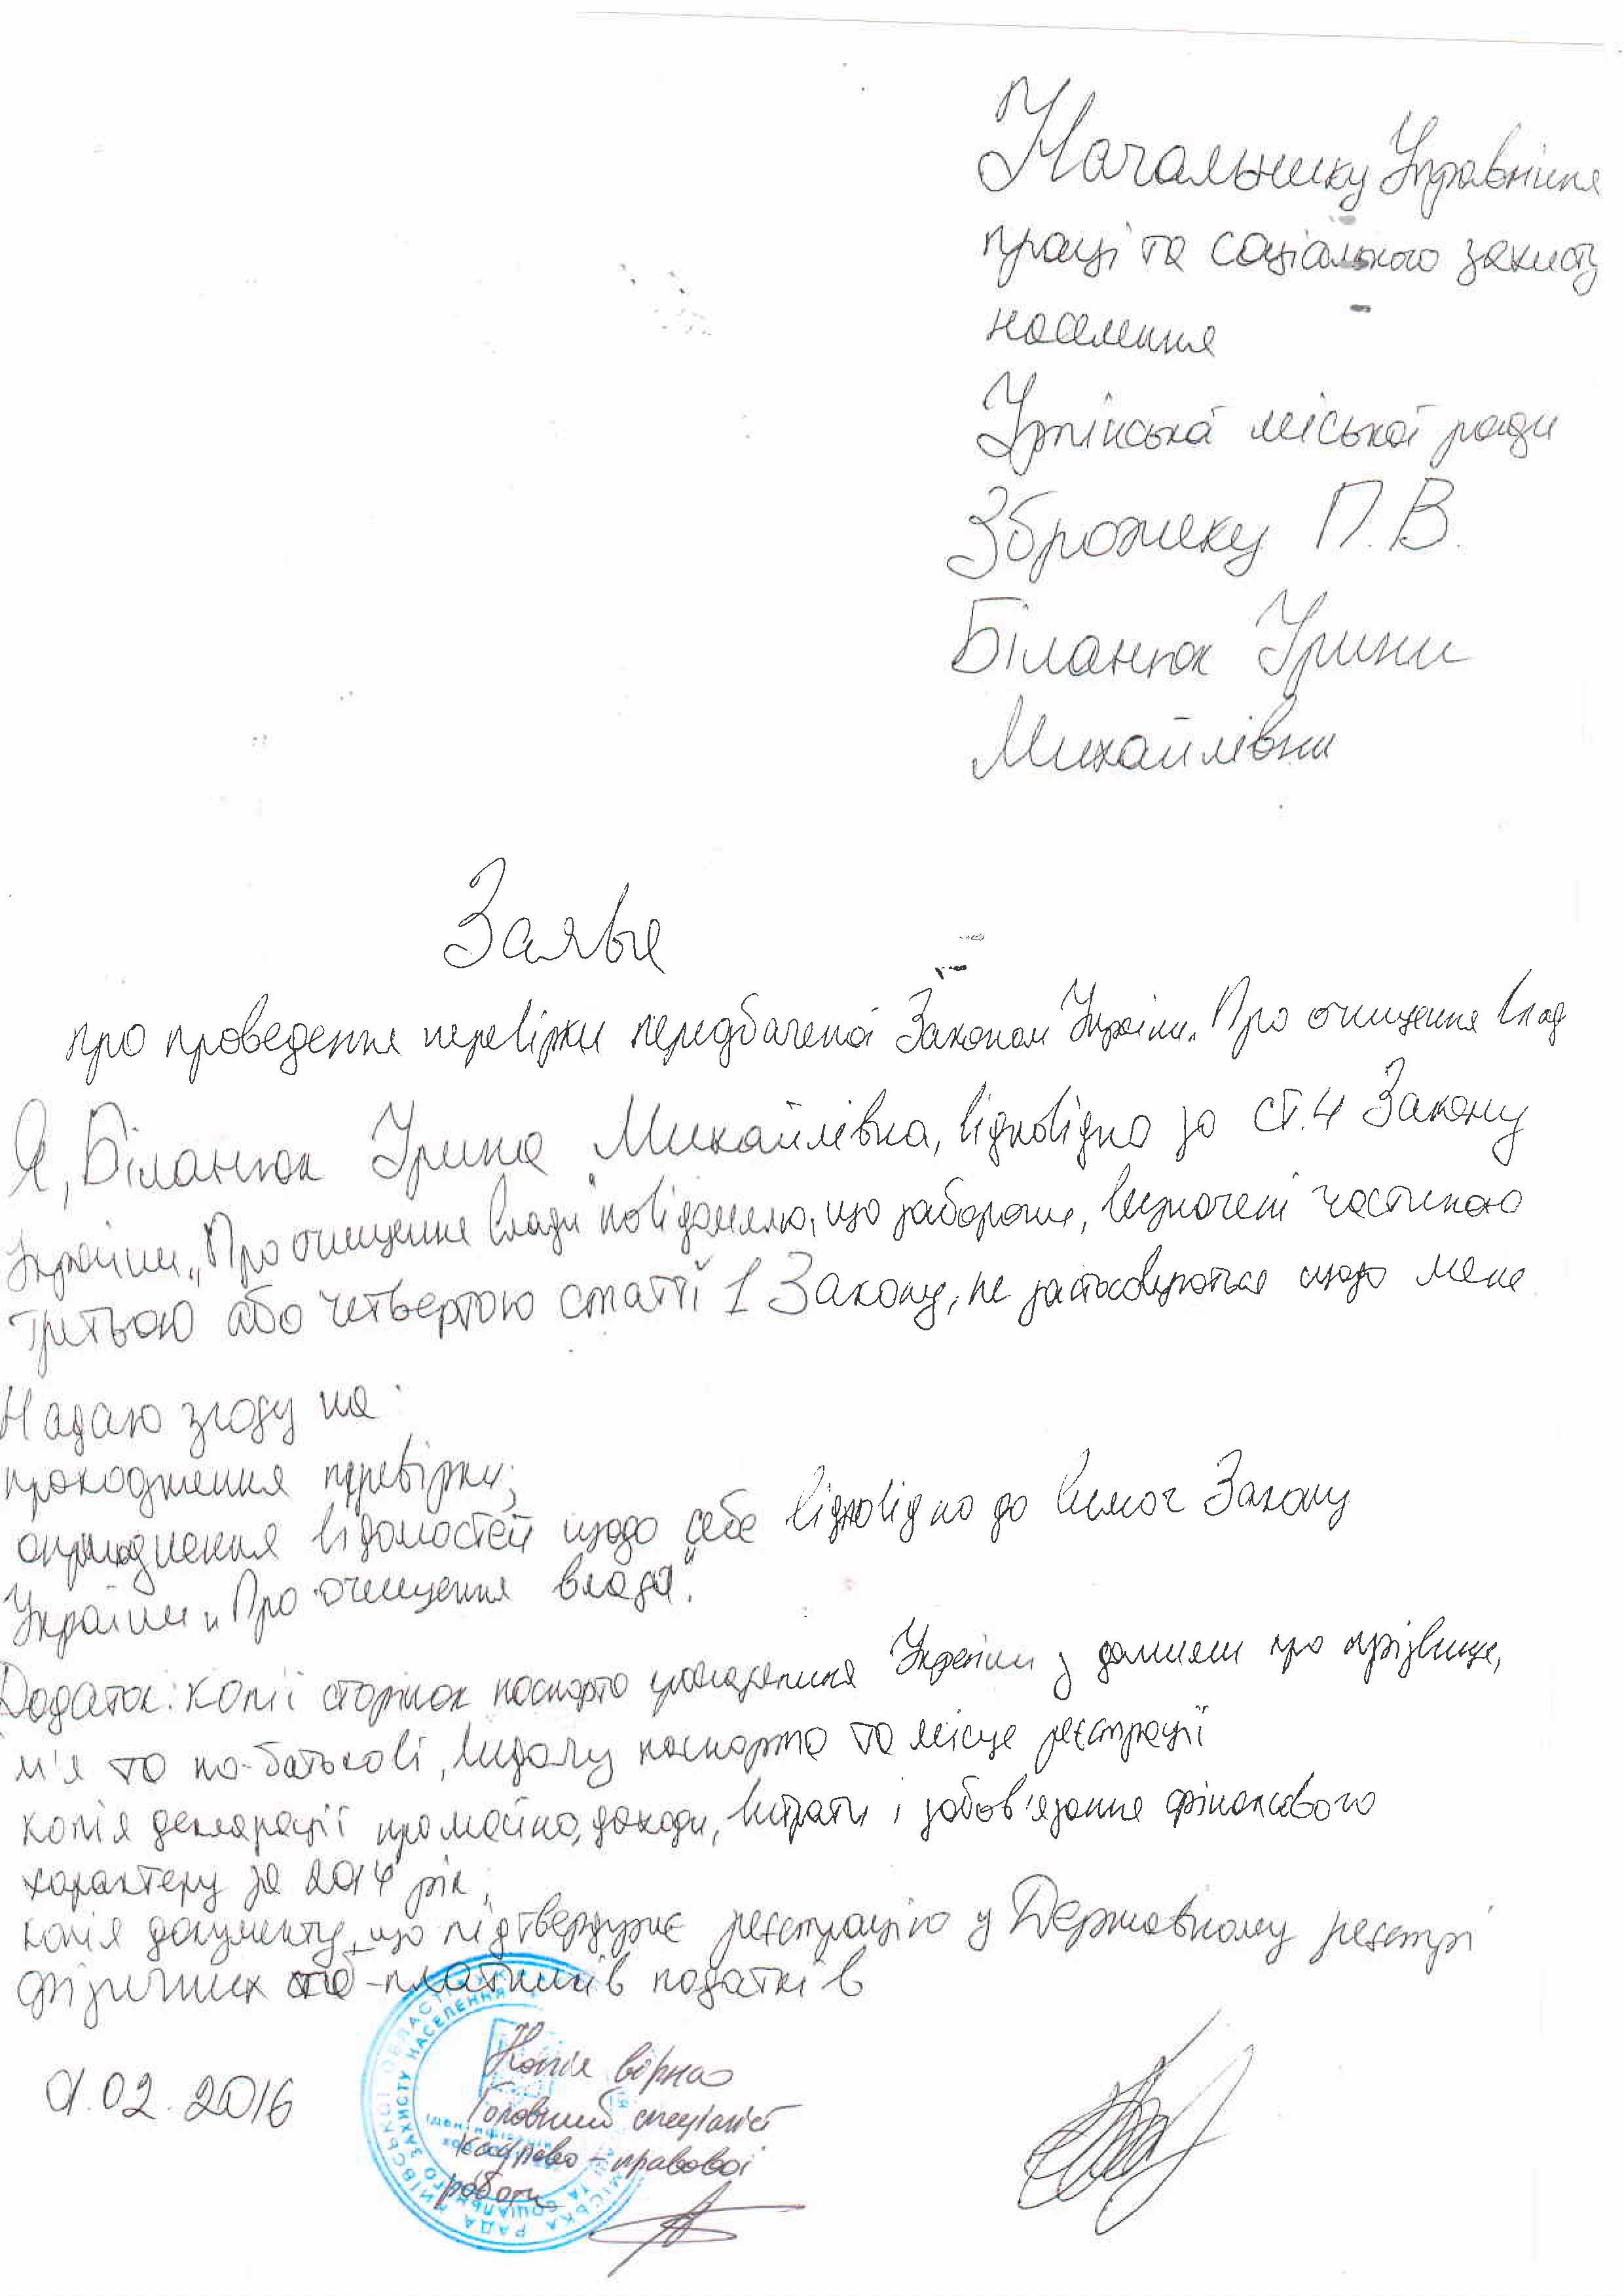 Начальнику Управління
праці та соціального захисту
населення
Ірпінської міської ради
Зброжеку П.В.
Біланюк Ірини
Михайлівни
Заява
про проведення перевірки передбаченої Законом України „Про очищення влад
Я, Біланюк Ірина Михайлівна, відповідно до ст.4 Закону
України „Про очищення влади" повідомляю, що заборони, визначені частиною
третьою або четвертою статті 1 Закону, не застосовуються щодо мене
Надаю згоду на:
проходження перевірки;
оприлюднення відомостей щодо себе відповідно до вимог Закону
України „Про очищення влади".
Додаток: копії сторінок паспорта громадянина України з даними про прізвище,
м'я та по-батькові, видачу паспорта та місце реєстрації
копія декларації про майно, доходи, витрати і зобов'язання фінансового
характеру за 2014 рік;
копія документу, що підтверджує реєстрацію у Державному реєстрі
фізичних осіб-платників податків
02.2016
Копія вірна
Головний спеціаліст
кадрово-правової
роботи
МІСЬКА РАДА КИЇВСЬКОЇ ОБЛАСТІ
СОЦІАЛЬНОГО ЗАХИСТУ НАСЕЛЕННЯ